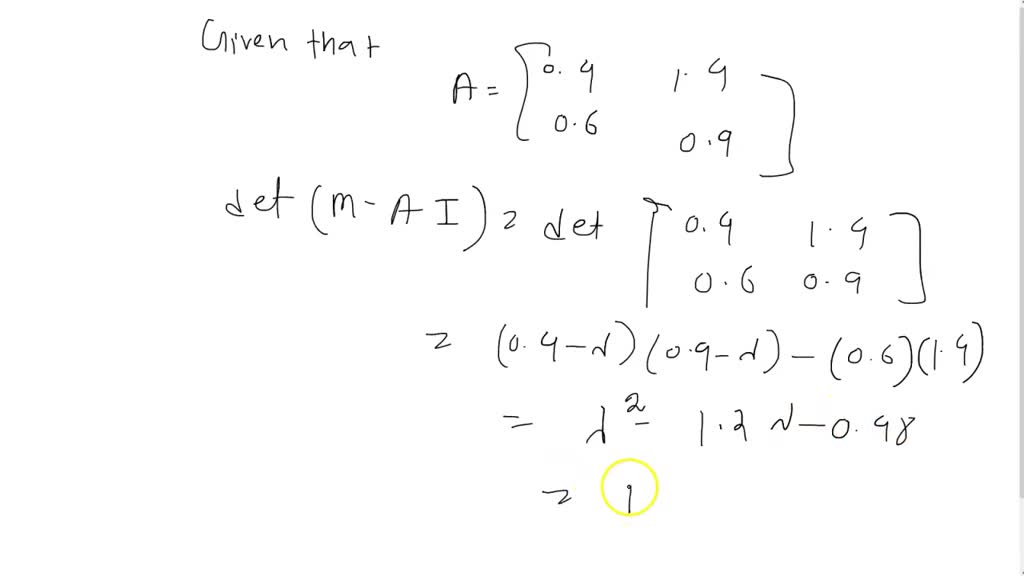 Given that
A = [ 0.4 1.4
0.6 0.9 ]
det (m - A I) = det [ 0.4 1.4
0.6 0.9 ]
= (0.4 - λ) (0.9 - λ) - (0.6) (1.4)
= λ² - 1.3 λ - 0.48
= 1